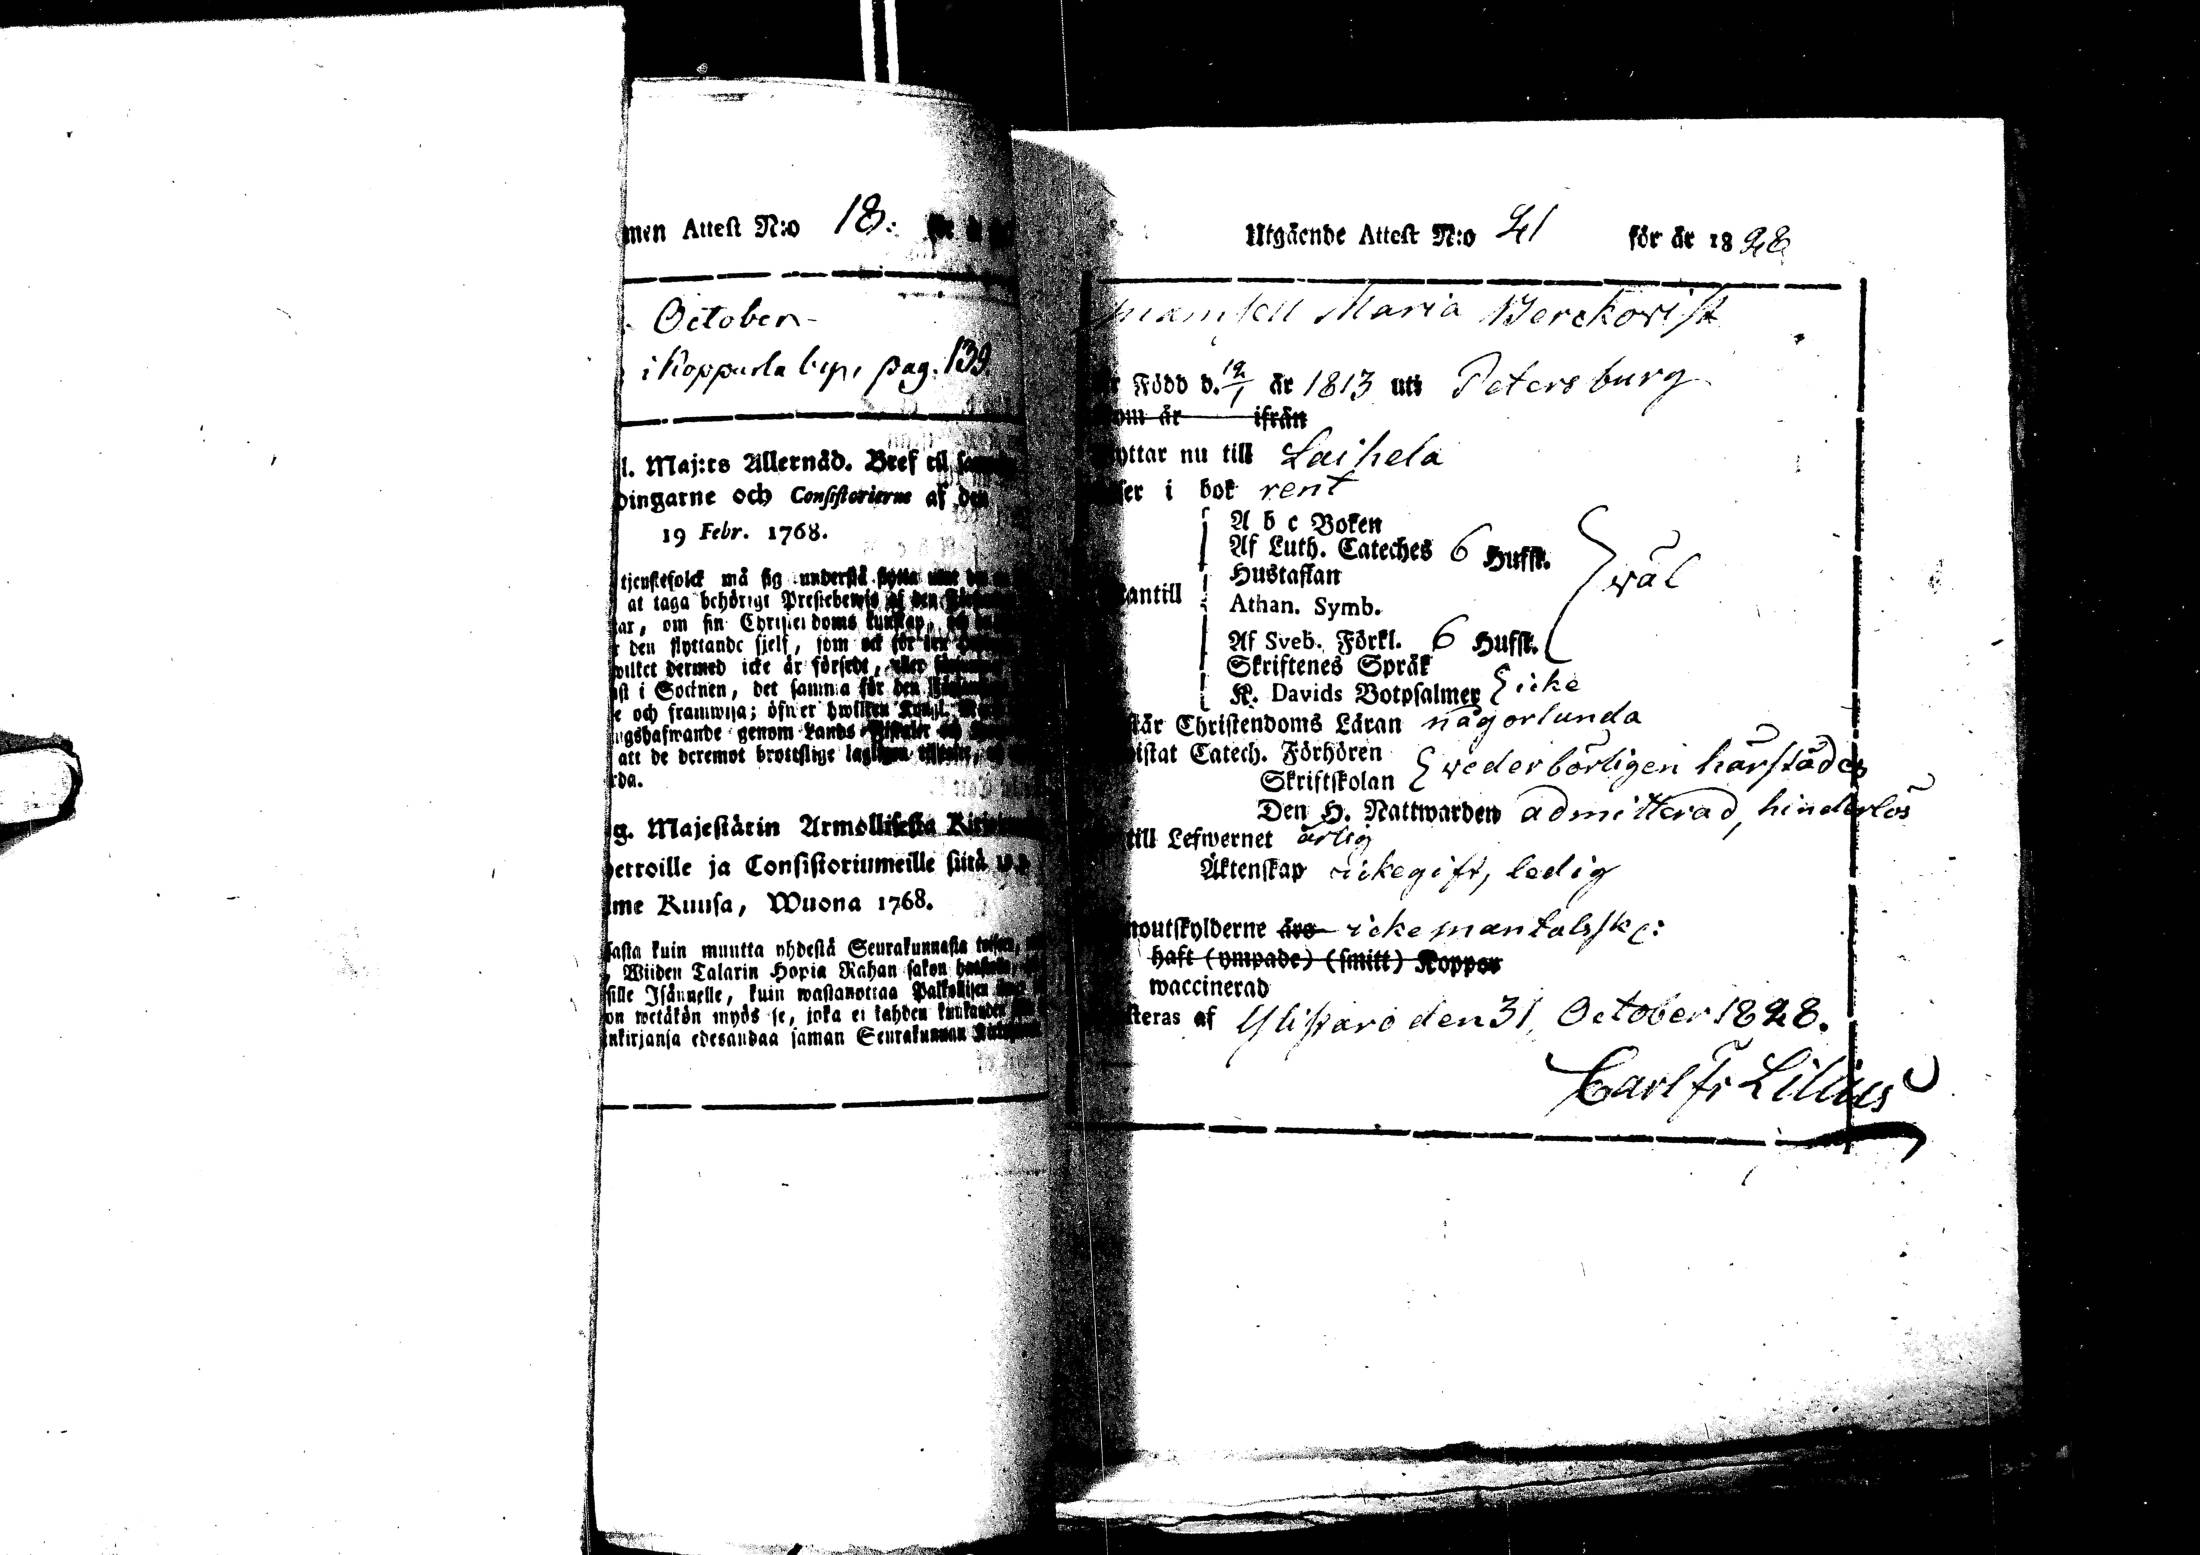 men Attest N:o 18:
October
i Koppurla by, pag. 139
l. Maj:ts Allernåd. Bref til
dingarne och Consistorierne af den
19 Febr. 1768.
tjenstefolck må sig understå flytta
at taga behörigt Prestebewis af den
ar, om sin Christendoms kunskap,
r den flyttande sjelf, som ock för den
wilket dermed icke är försedt, eller
st i Socknen, det samma för den
e och framwisa; öfwer hwilken Kongl.
ngshafwande genom Lands
att de deremot brottslige lagligen
rda.
g. Majestätin Armollisesta
erroille ja Consistoriumeille siitä 19.
me Kuusa, Wuona 1768.
asta kuin muutta yhdestä Seurakunnasta
, Wiiden Talarin Hopia Rahan sakon
sille Isännelle, kuin wastanottaa Palkollisen
on wetäkön myös se, joka ei kahden kuukauden
nkirjansa edesandaa saman Seurakunnan
Utgående Attest N:o 41 för år 1828
Mamsell Maria Werckovist
är Född d. 12/1 år 1813 uti Petersburg
om år ifrån
yttar nu till Laihela
ser i bok rent
A b c Boken
Af Luth. Cateches 6 Hufst.
Hustaflan
wäl
antill
Athan. Symb.
Af Sveb. Förkl. 6 Hufst.
Skriftenes Språk
K. Davids Botpsalmer icke
står Christendoms Läran någorlunda
istat Catech. Förhören
Skriftskolan wederbörligen härstädes
Den H. Nattwarden admitterad, hinderlös
till Lefwernet ärlig
Äktenskap ickegift, ledig
noutskylderne äro icke mantalssk:
haft (ympade) (smitt) Koppor
waccinerad
steras af Ylistaro den 31 October 1828.
Carl Fr Lilius